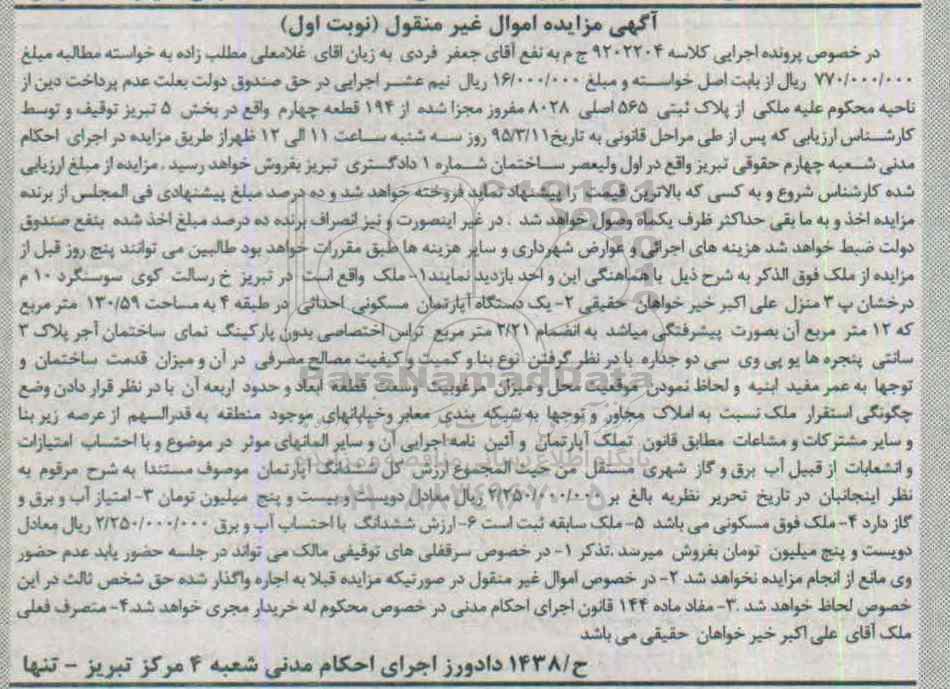 آگهی مزایده اموال غیر منقول (نوبت اول)
در خصوص پرونده اجرایی کلاسه ۹۲۰۲۲۰۴ ج م به نفع آقای جعفر فردی به زیان اقای غلامعلی مطلب زاده به خواسته مطالبه مبلغ
۷۷۰/۰۰۰/۰۰۰ ریال از بابت اصل خواسته و مبلغ ۱۶/۰۰۰/۰۰۰ ریال نیم عشر اجرایی در حق صندوق دولت بعلت عدم پرداخت دین از
ناحیه محکوم علیه ملکی از پلاک ثبتی ۵۶۵ اصلی ۸۰۲۸ مفروز مجزا شده از ۱۹۴ قطعه چهارم واقع در بخش ۵ تبریز توقیف و توسط
کارشناس ارزیابی که پس از طی مراحل قانونی به تاریخ ۹۵/۳/۱۱ روز سه شنبه ساعت ۱۱ الی ۱۲ ظهر از طریق مزایده در اجرای احکام
مدنی شعبه چهارم حقوقی تبریز واقع در اول ولیعصر ساختمان شماره ۱ دادگستری تبریز بفروش خواهد رسید . مزایده از مبلغ ارزیابی
شده کارشناس شروع و به کسی که بالاترین قیمت را پیشنهاد نماید فروخته خواهد شد و ده درصد مبلغ پیشنهادی فی المجلس از برنده
مزایده اخذ و به ما بقی حداکثر ظرف یکماه وصول خواهد شد . در غیر اینصورت و نیز انصراف برنده ده درصد مبلغ اخذ شده بنفع صندوق
دولت ضبط خواهد شد هزینه های اجرائی و عوارض شهرداری و سایر هزینه ها طبق مقررات خواهد بود طالبین می توانند پنج روز قبل از
مزایده از ملک فوق الذکر به شرح ذیل با هماهنگی این واحد بازدید نمایند ۱- ملک واقع است در تبریز خ رسالت کوی سوسنگرد ۱۰ م
درخشان پ ۳ منزل علی اکبر خیر خواهان حقیقی ۲- یک دستگاه آپارتمان مسکونی احداثی در طبقه ۴ به مساحت ۱۳۰/۵۹ متر مربع
که ۱۲ متر مربع آن بصورت پیشرفتگی میباشد به انضمام ۲/۲۱ متر مربع تراس اختصاصی بدون پارکینگ نمای ساختمان آجر پلاک ۳
سانتی پنجره ها یو پی وی سی دو جداره با در نظر گرفتن نوع بنا و کمیت و کیفیت مصالح مصرفی در آن و میزان قدمت ساختمان و
توجها به عمر مفید ابنیه و لحاظ نمودن موقعیت محل و میزان مرغوبیت وسعت قطعه ابعاد و حدود اربعه آن با در نظر قرار دادن وضع
چگونگی استقرار ملک نسبت به املاک مجاور و توجها به شبکه بندی معابر وخیابانهای موجود منطقه به قدرالسهم از عرصه زیر بنا
و سایر مشترکات و مشاعات مطابق قانون تملک آپارتمان و آئین نامه اجرایی آن و سایر المانهای موثر در موضوع و با احتساب امتیازات
و انشعابات از قبیل آب برق و گاز شهری مستقل من حیث المجموع ارزش کل ششدانگ آپارتمان موصوف مستندا به شرح مرقوم به
نظر اینجانبان در تاریخ تحریر نظریه بالغ بر ۲/۲۵۰/۰۰۰/۰۰۰ ریال معادل دویست و بیست و پنج میلیون تومان ۳- امتیاز آب و برق و
گاز دارد ۴- ملک فوق مسکونی می باشد ۵- ملک سابقه ثبت است ۶- ارزش ششدانگ با احتساب آب و برق ۲/۲۵۰/۰۰۰/۰۰۰ ریال معادل
دویست و پنج میلیون تومان بفروش میرسد .تذکر ۱- در خصوص سرقفلی های توقیفی مالک می تواند در جلسه حضور یابد عدم حضور
وی مانع از انجام مزایده نخواهد شد ۲- در خصوص اموال غیر منقول در صورتیکه مزایده قبلا به اجاره واگذار شده حق شخص ثالث در این
خصوص لحاظ خواهد شد .۳- مفاد ماده ۱۴۴ قانون اجرای احکام مدنی در خصوص محکوم له خریدار مجری خواهد شد.۴- متصرف فعلی
ملک آقای علی اکبر خیر خواهان حقیقی می باشد
ح/۱۴۳۸ دادورز اجرای احکام مدنی شعبه ۴ مرکز تبریز - تنها